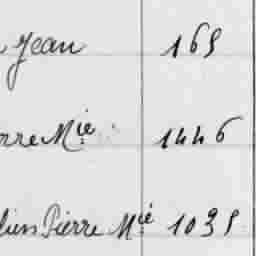 Jean 165
rre Mie 1446
lien Pierre Mié 1035